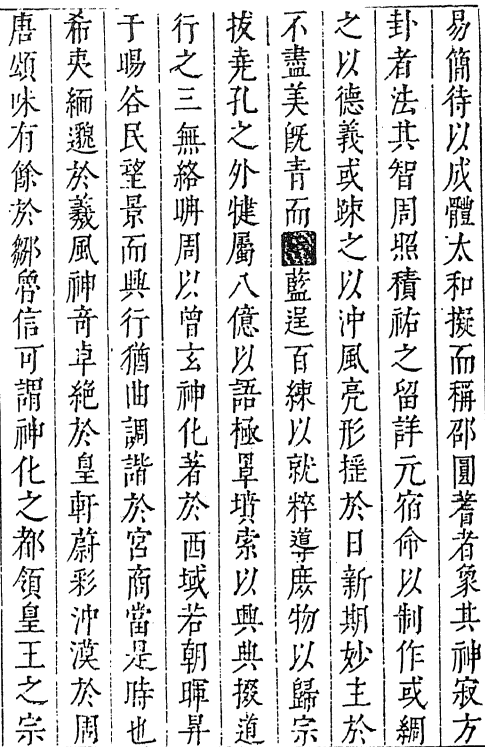 易簡待以成體太和擬而稱邵圓蓍者象其神寂方
卦者法其智周照積祐之留詳元宿命以制作或綢
之以德義或踈之以沖風亮形摧於日新期妙主於
不盡美旣青而藍逞百練以就粹導庶物以歸宗
拔堯孔之外揵屬八億以語極罩墳索以興典掇道
行之三無絡聃周以曾玄神化著於西域若朝暉昇
于暘谷民望景而興行猶曲調諧於宮商當是時也
希夷緬邈於羲風神奇卓絕於皇軒蔚彩沖漠於周
唐頌味有餘於鄒魯信可謂神化之都領皇王之宗